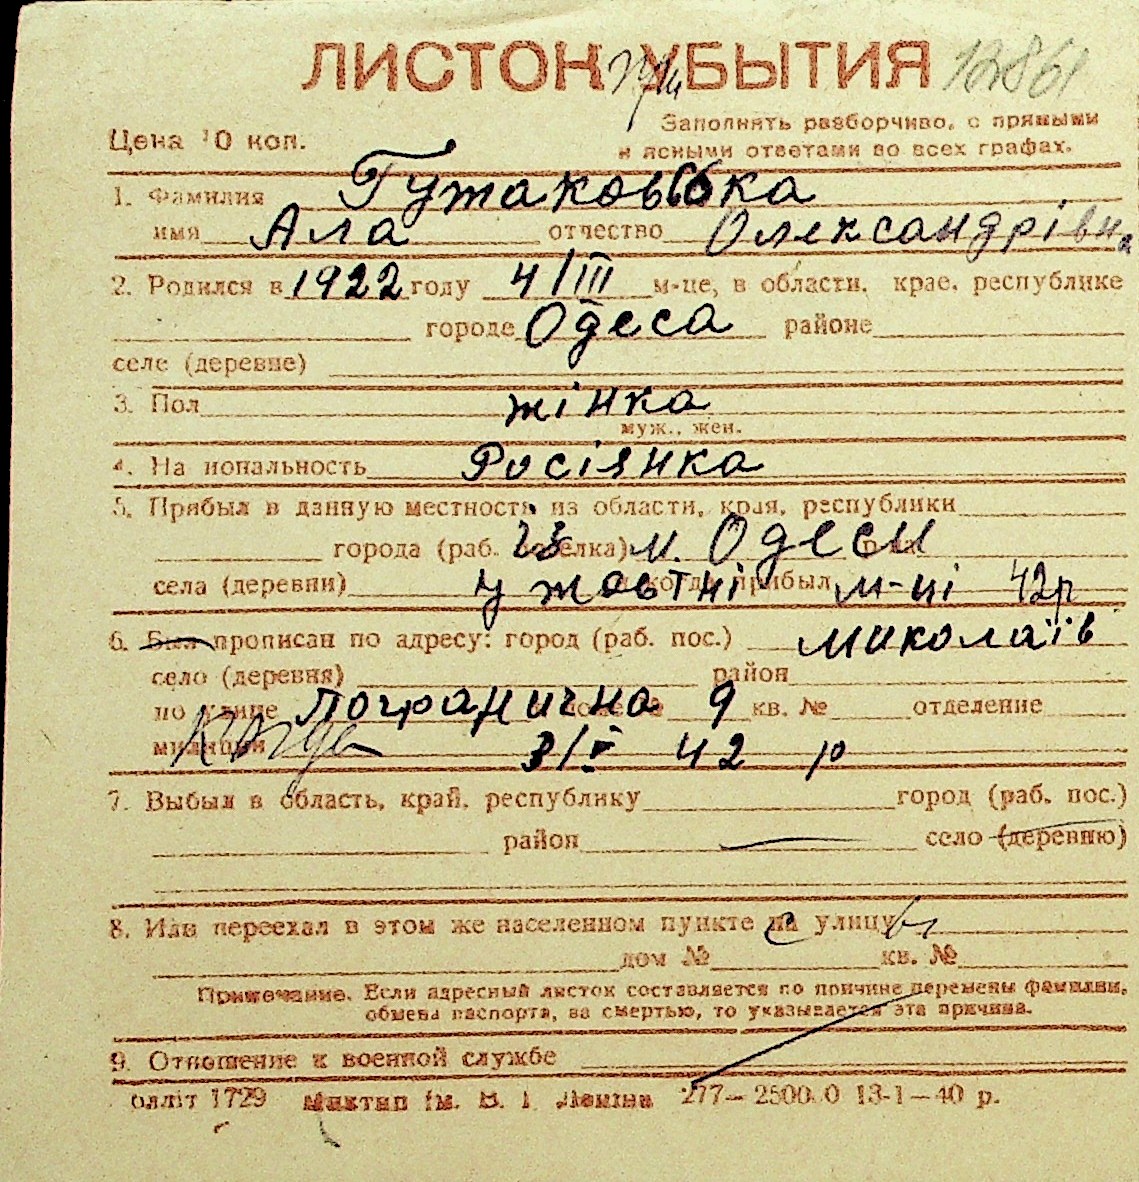 ЛИСТОК УБЫТИЯ 12861
при
Цена 10 коп.
Заполнять разборчиво, с прямыми
и ясными ответами во всех графах.
1. Фамилия Гутаковська
имя Ала отчество Олександрівна
2. Родился в 1922 году 4/III м-це, в области, крае, республике
городе Одеса районе
селе (деревне)
3. Пол жінка
муж., жен.
4. Национальность Росіянка
5. Прибыл в данную местность из области, края, республики
города (раб. поселка) м. Одеси
села (деревни) у жовтні и когда прибыл м-ці 42р
6. Был прописан по адресу: город (раб. пос.) Миколаїв
село (деревня) район
по улице Погранична 9 кв. № отделение
милиции 42 р
7. Выбыл в область, край, республику город (раб. пос.)
район село (деревню)
8. Или переехал в этом же населенном пункте на улицу
дом № кв. №
Примечание. Если адресный листок составляется по причине перемены фамилии,
обмена паспорта, за смертью, то указывается эта причина.
9. Отношение к военной службе
олліт 1729 Миктип ім. В. І. Леніна 277—2500.0 13-1—40 р.